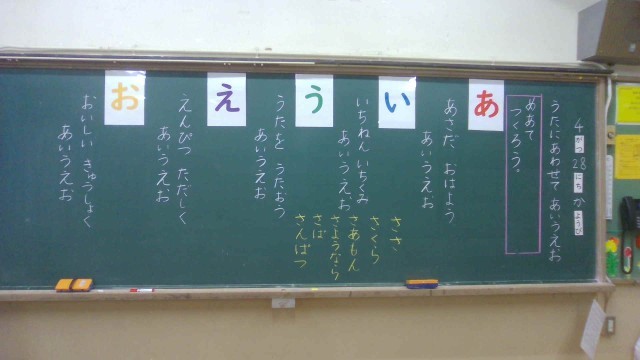 4がつ28にち かようび
うたにあわせて あいうえお
めあて
つくろう。
あ
あさだ、おはよう
あいうえお
い
いちねん いちくみ
あいうえお
う
うたを うたおう
あいうえお
え
えんぴつ ただしく
あいうえお
お
おいしい きゅうしょく
あいうえお
ささ
さくら
さあもん
さようなら
さば
さんぱつ